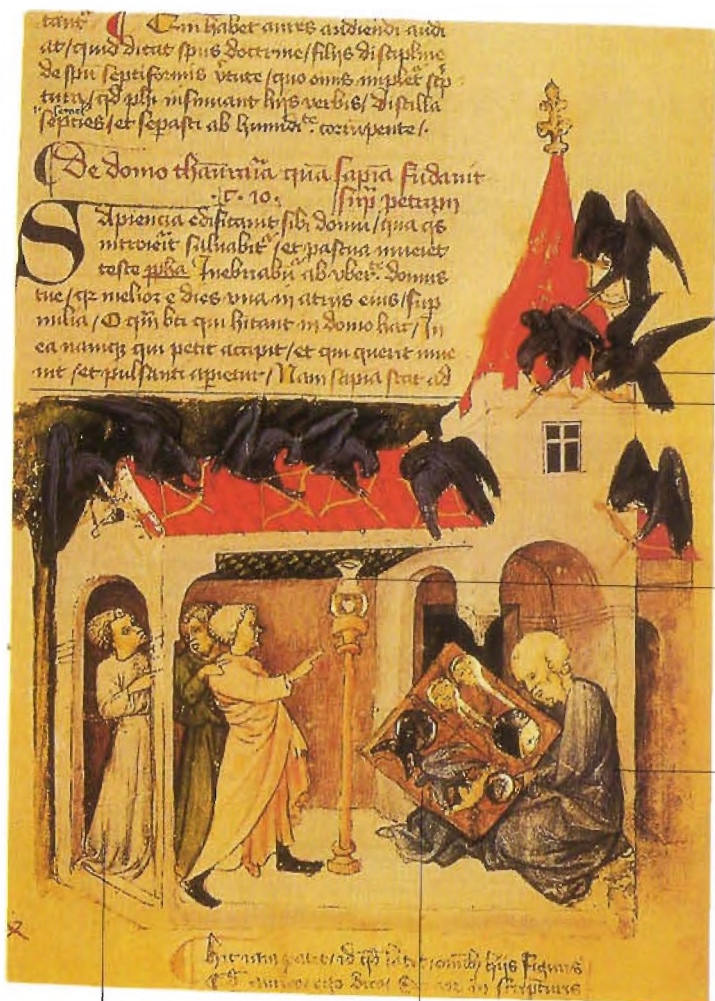 tant ¶ Qui habet aures audiendi audi
at / quid dicat spus doctrine / filijs discipline
de spu septiformis vtute / quo omis implet scp
tura / qd phi insinuant hijs verbis / Distilla
septies / et sepasti ab humidi te corrupente /.
¶ De domo thauraria qua sapia fudauit
.C. 10. sup petram
Sapiencia edificauit sibi domu / qua qs
introierit saluabit / et pascua inueiet
teste ppha Inebriabu ab vber domus
tue / qr melior e dies vna in atrijs eius / sup
milia / O qm bti qui hitant in domo hac / In
ea namq qui petit accipit / et qui querit inue
nit / et pulsanti apietur / Nam sapia stat ad
patet / id qd latet / hijs figuris
in scripturis